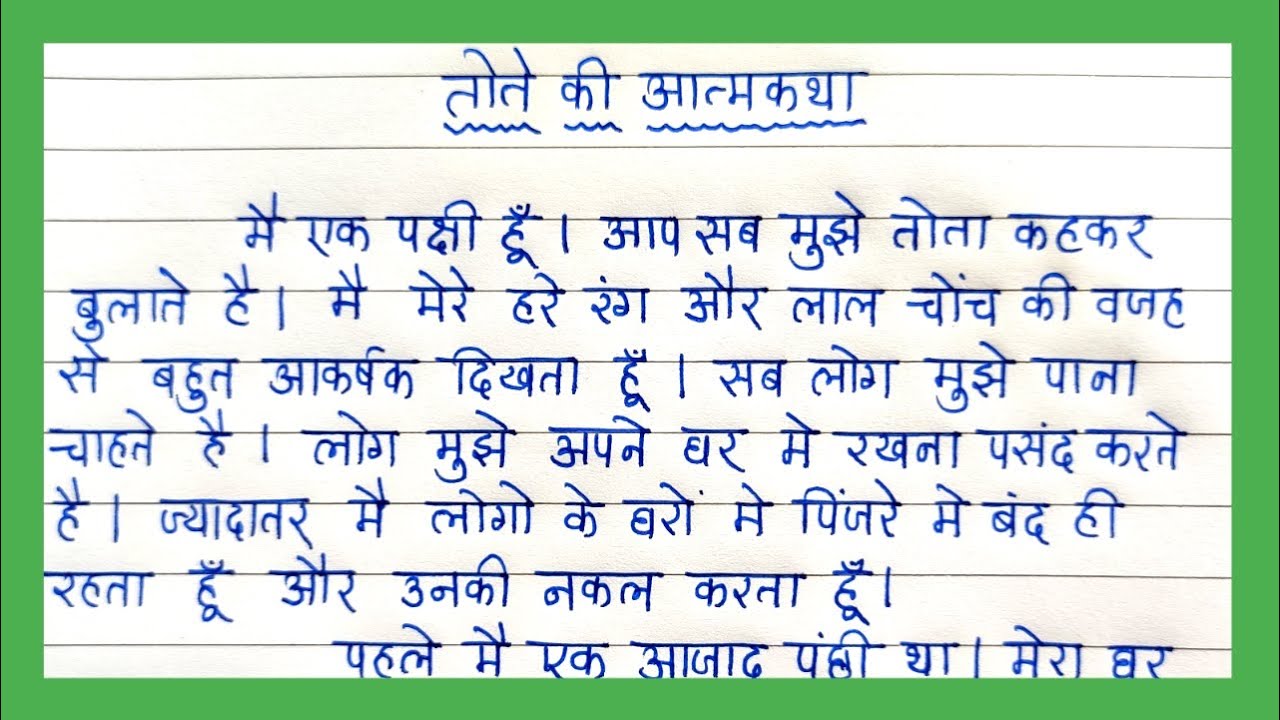 तोते की आत्मकथा
मै एक पक्षी हूँ । आप सब मुझे तोता कहकर
बुलाते है । मै मेरे हरे रंग और लाल चोंच की वजह
से बहुत आकर्षक दिखता हूँ । सब लोग मुझे पाना
चाहते है । लोग मुझे अपने घर मे रखना पसंद करते
है । ज्यादातर मै लोगो के घरों मे पिंजरे मे बंद ही
रहता हूँ और उनकी नकल करता हूँ ।
पहले मै एक आजाद पंछी था । मेरा घर